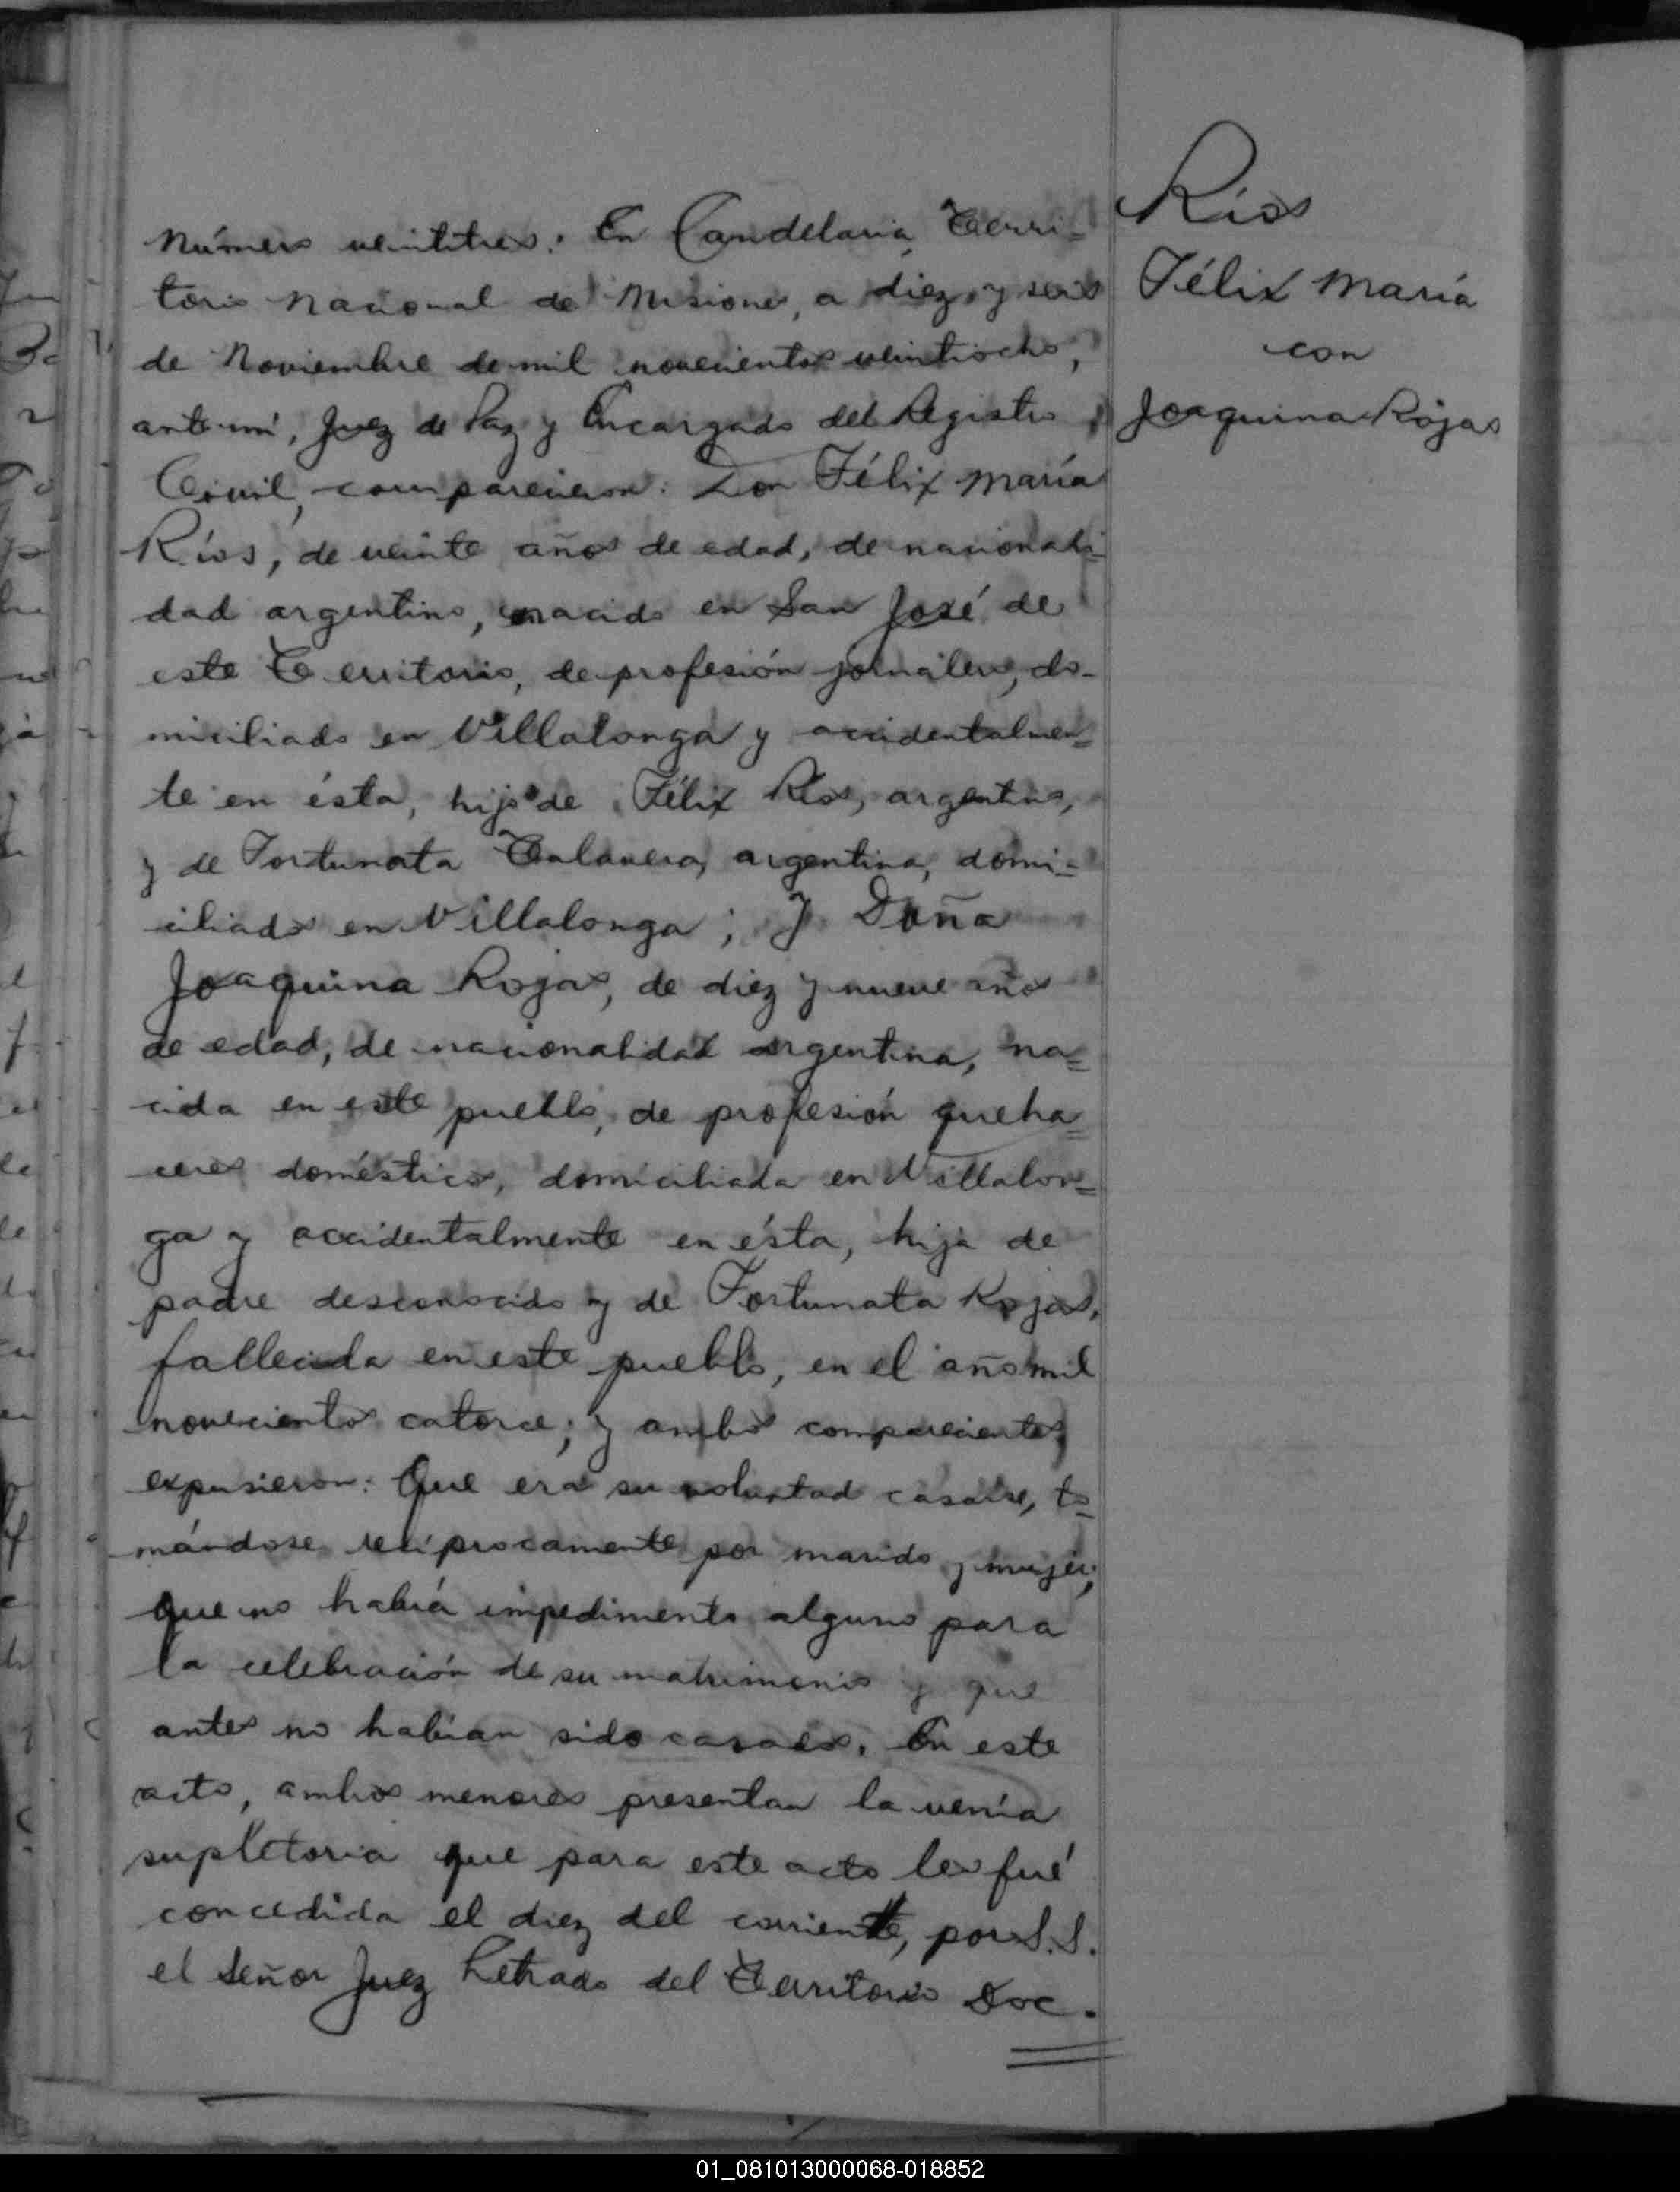 Ríos
Félix María
con
Joaquina Rojas
Número veintitres: En Candelaria, Terri-
torio Nacional de Misiones, a diez y seis
de Noviembre de mil novecientos veintiocho,
ante mí, Juez de Paz y Encargado del Registro
Civil, comparecieron: Don Félix María
Ríos, de veinte años de edad, de nacionali-
dad argentino, nacido en San José de
este Territorio, de profesión jornalero, do-
miciliado en Villalonga y accidentalmen=
te en ésta, hijo de Félix Ríos, argentino,
y de Fortunata Talavera, argentina, domi-
ciliados en Villalonga; y Doña
Joaquina Rojas, de diez y nueve años
de edad, de nacionalidad argentina, na=
cida en este pueblo, de profesión queha=
ceres domésticos, domiciliada en Villalon=
ga y accidentalmente en ésta, hija de
padre desconocido y de Fortunata Rojas,
fallecida en este pueblo, en el año mil
novecientos catorce; y ambos comparecientes
expusieron: Que era su voluntad casarse, to=
mándose recíprocamente por marido y mujer;
que no había impedimento alguno para
la celebración de su matrimonio y que
antes no habían sido casados. En este
acto, ambos menores presentan la venia
supletoria que para este acto les fué
concedida el diez del corriente, por S.S.
el Señor Juez Letrado del Territorio Doc.
01_081013000068-018852